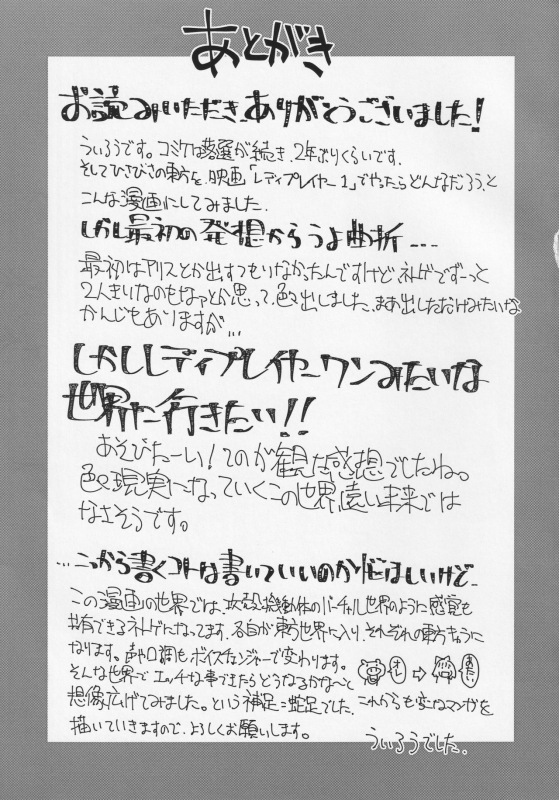 あとがき
お読みいただき、ありがとうございました!
ういろうです。コミケは落選が続き、2年ぶりくらいです。
そしてひさびさの東方を、映画「レディプレイヤー1」でやったらどんなだろう、と
こんな漫画にしてみました。
しかし最初の発想からうよ曲折....
最初はアリスとか出すつもりなかったんですけど、ネトゲでずーっと
2人きりなのもなァとか思って、色々出しました、まぁ出しただけみたいな
かんじもありますが...
しかしレディプレイヤーワンみたいな
世界に行きたい!!
あそびたーい!てのが観た感想でしたね。
色々現実になっていくこの世界、遠い未来では
なさそうです。
...こっから書くコトは書いていいのか
この漫画の世界では、攻殻機動隊のバーチャル世界のように感覚も
共有できるネトゲになってます、各自が東方世界に入り、それぞれの東方キャラに
なります。声や口調もボイスチェンジャーで変わります。
そんな世界でエッチな事できたらどうなるかな〜と
想像広げてみました。という補足=蛇足でした。これからも変なマンガを
描いていきますので、よろしくお願いします。
ういろうでした.